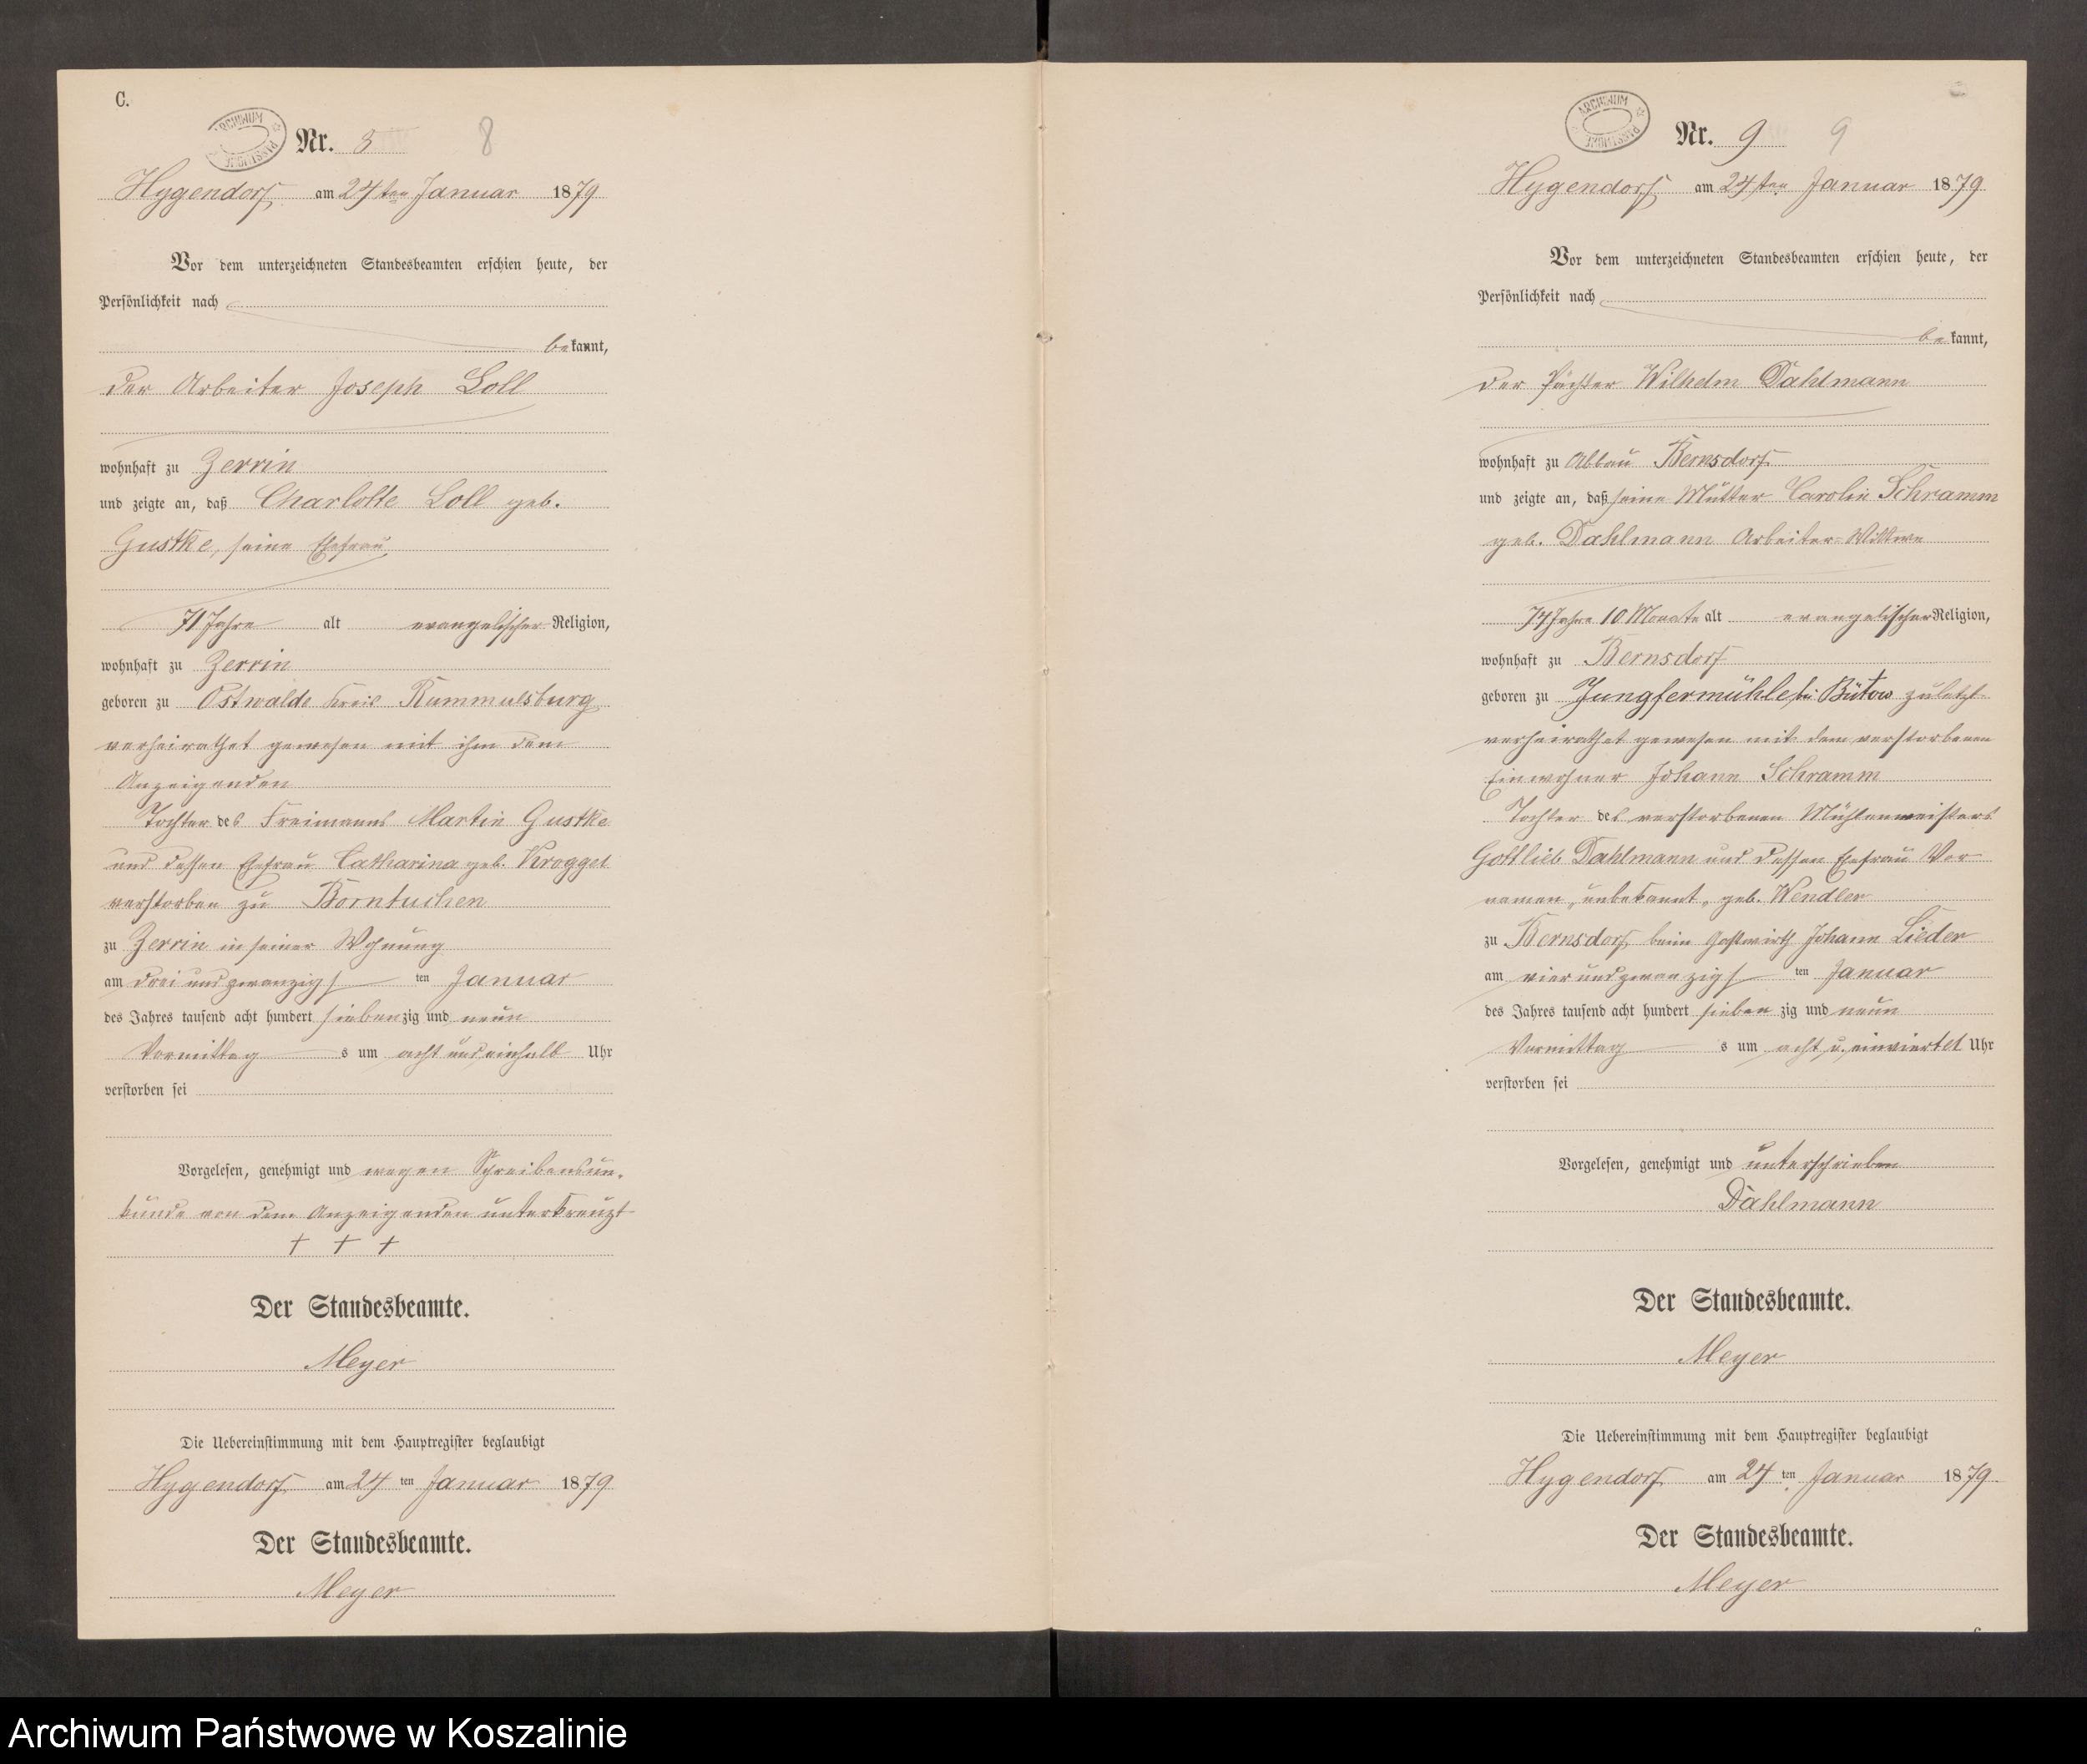 C.
ARCHIWUM PAŃSTWOWE
Nr. 8 8
Hygendorf am 24ten Januar 1879
Vor dem unterzeichneten Standesbeamten erschien heute, der
Persönlichkeit nach
bekannt,
der Arbeiter Joseph Loll
wohnhaft zu Zerrin
und zeigte an, daß Charlotte Loll geb.
Gustke, seine Ehefrau
71 Jahre alt evangelischer Religion,
wohnhaft zu Zerrin
geboren zu Ostwalde Kreis Rummelsburg
verheirathet gewesen mit ihm dem
Anzeigenden
Tochter des Freimanns Martin Gustke
und dessen Ehefrau Catharina geb. Krogget
verstorben zu Borntuchen
zu Zerrin in seiner Wohnung
am drei und zwanzigsten Januar
des Jahres tausend acht hundert siebenzig und neun
Vormittags um acht und einhalb Uhr
verstorben sei
Vorgelesen, genehmigt und wegen Schreibensun-
kunde von dem Anzeigenden unterkreuzt
+ + +
Der Standesbeamte.
Meyer
Die Uebereinstimmung mit dem Hauptregister beglaubigt
Hygendorf am 24ten Januar 1879
Der Standesbeamte.
Meyer
ARCHIWUM PAŃSTWOWE
Nr. 9 9
Hygendorf am 24ten Januar 1879
Vor dem unterzeichneten Standesbeamten erschien heute, der
Persönlichkeit nach
bekannt,
der Pächter Wilhelm Dahlmann
wohnhaft zu Abbau Bernsdorf
und zeigte an, daß seine Mutter Carolin Schramm
geb. Dahlmann Arbeiter-Wittwe
74 Jahre 10 Monate alt evangelischer Religion,
wohnhaft zu Bernsdorf
geboren zu Jungfermühle bei Bütow zuletzt
verheirathet gewesen mit dem verstorbenen
Einwohner Johann Schramm
Tochter des verstorbenen Mühlenmeisters
Gottlieb Dahlmann und dessen Ehefrau Vor
namen „unbekannt„ geb. Wendler
zu Bernsdorf beim Gastwirth Johann Lieder
am vier und zwanzigsten Januar
des Jahres tausend acht hundert siebenzig und neun
Vormittags um acht u. einviertel Uhr
verstorben sei
Vorgelesen, genehmigt und unterschrieben
Dahlmann
Der Standesbeamte.
Meyer
Die Uebereinstimmung mit dem Hauptregister beglaubigt
Hygendorf am 24ten Januar 1879
Der Standesbeamte.
Meyer
Archiwum Państwowe w Koszalinie